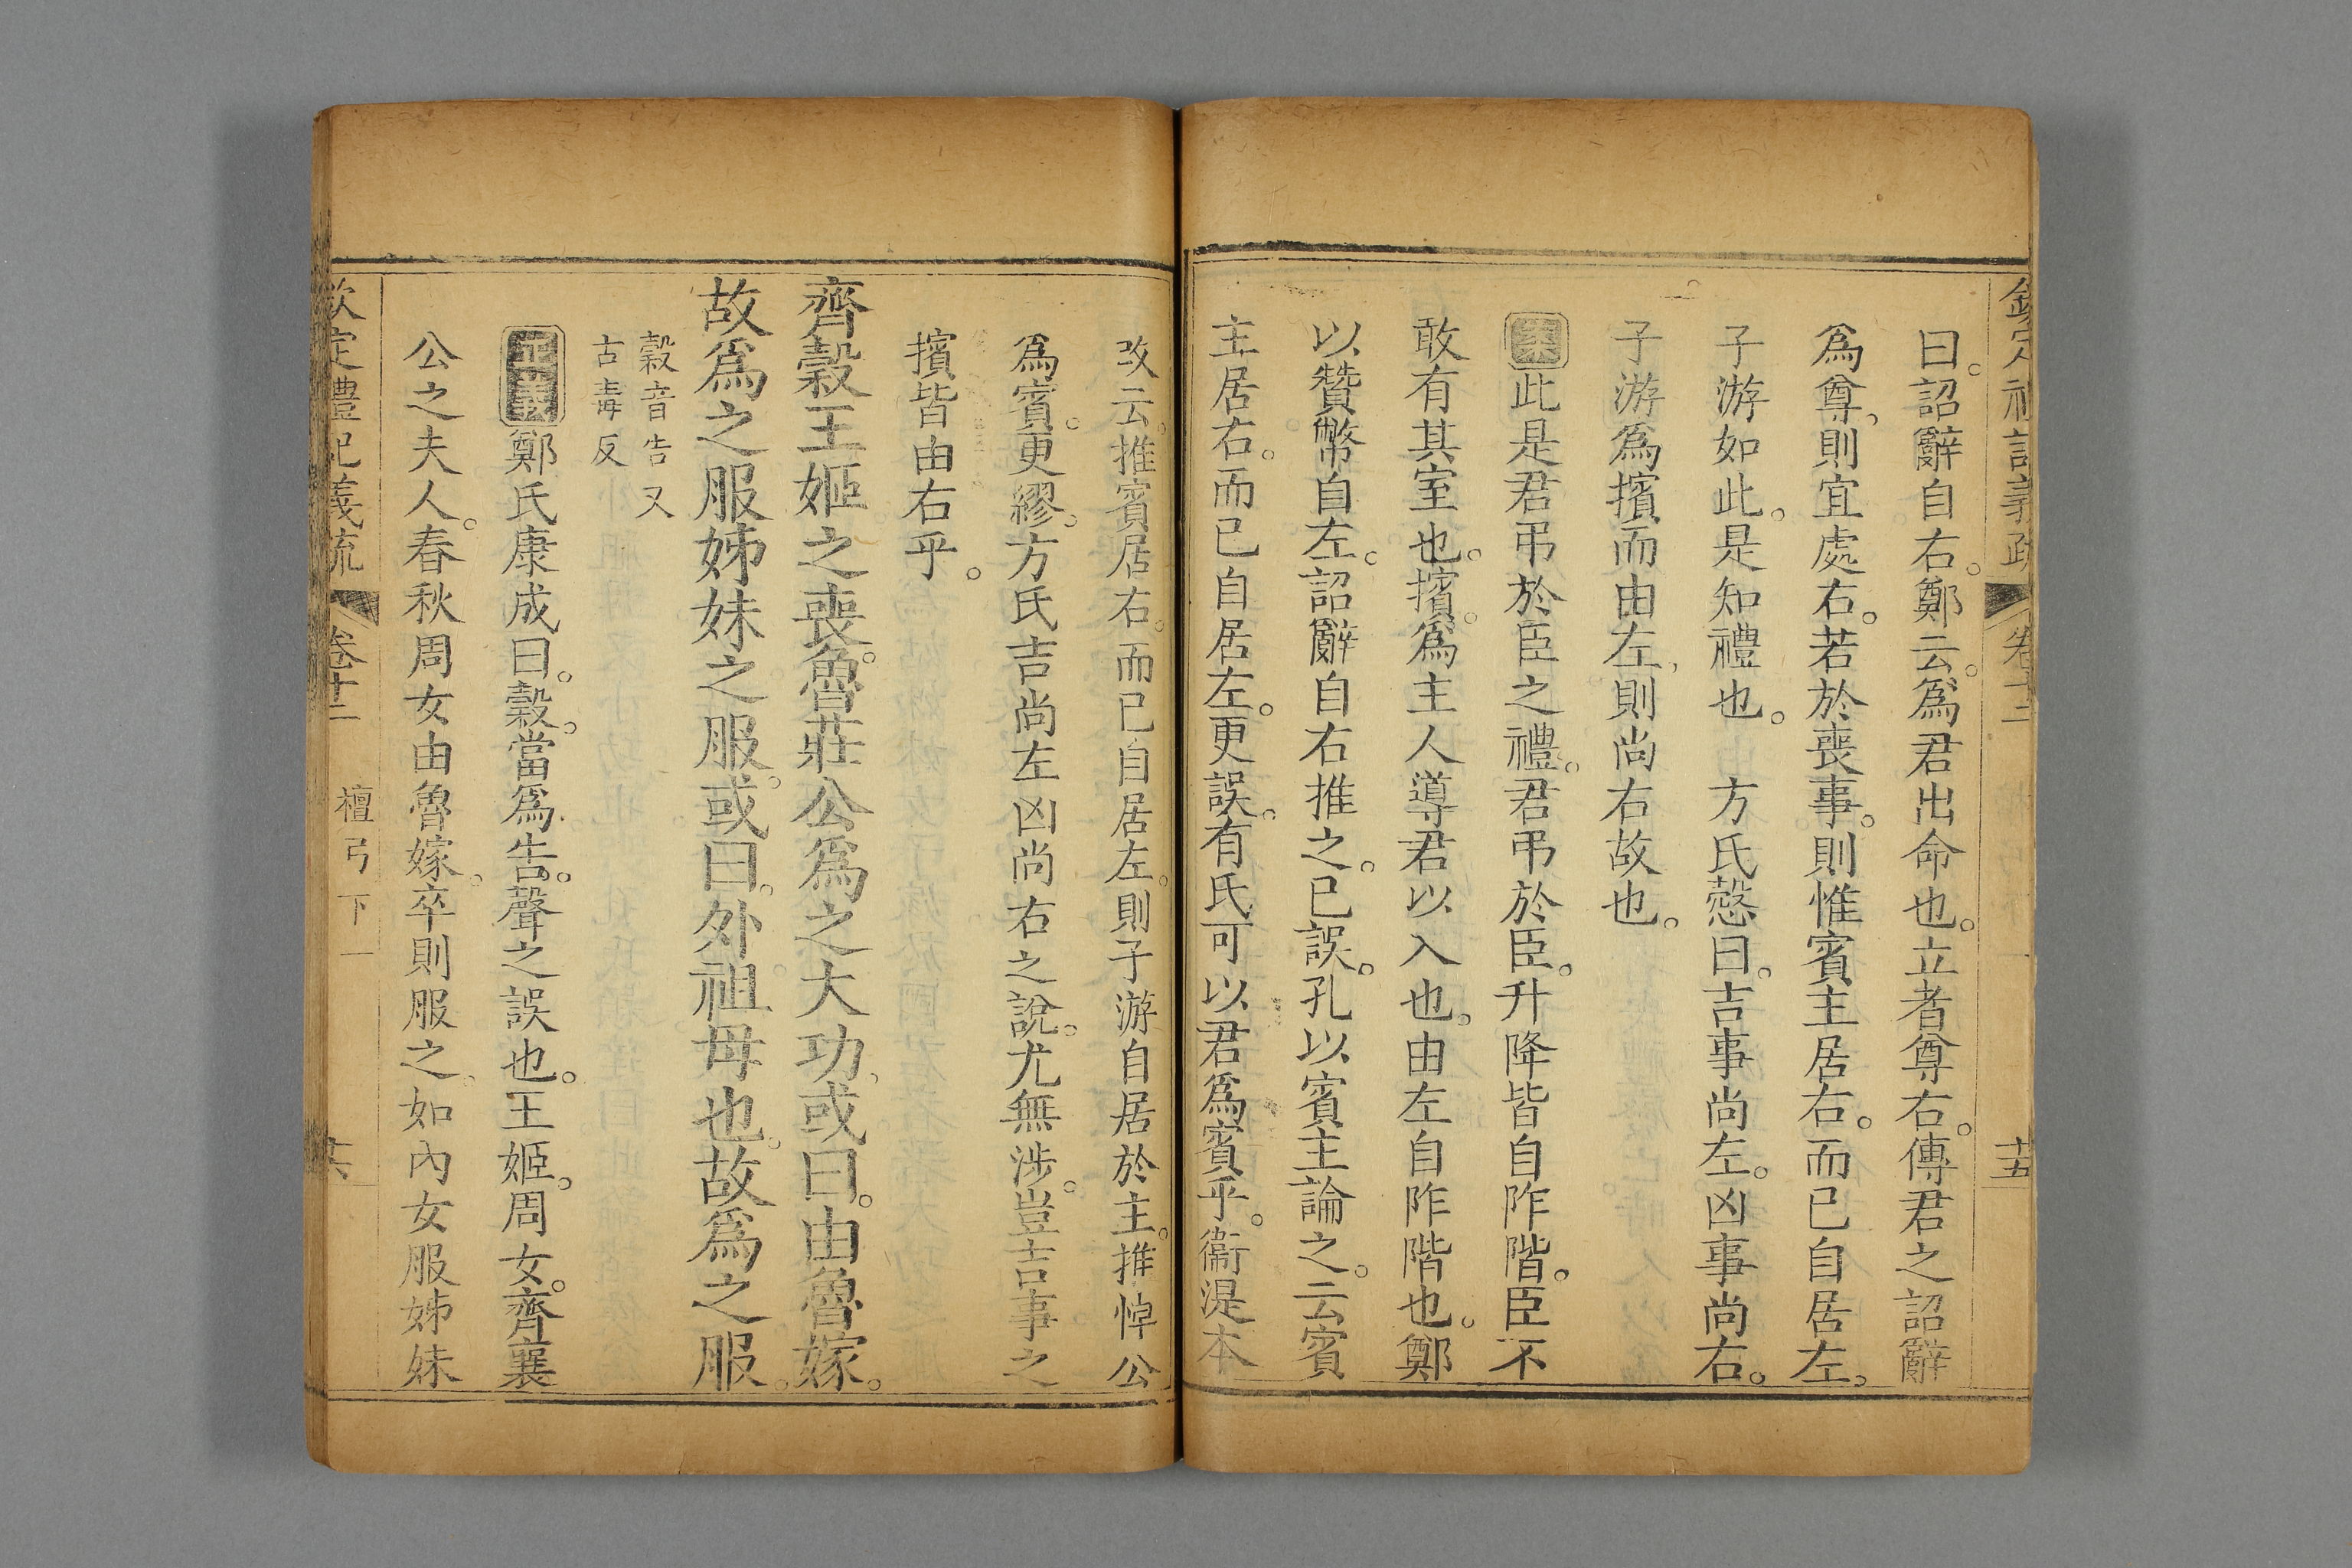 欽定禮記義疏 卷十二 十五
曰。詔辭自右。鄭云。爲君出命也。立者尊右。傳君之詔辭
爲尊、則宜處右。若於喪事。則惟賓主居右。而已自居左。
子游如此。是知禮也。 方氏慤曰。吉事尚左。凶事尚右。
子游爲擯而由左、則尚右故也。
案此是君弔於臣之禮。君弔於臣。升降皆自阼階。臣不
敢有其室也。擯。爲主人導君以入也。由左自阼階也。鄭
以贊幣自左。詔辭自右推之。已誤。孔以賓主論之。云賓
主居右。而已自居左。更誤。有氏可以君爲賓乎。衞湜本
改云。推賓居右。而已自居左。則子游自居於主。推悼公
爲賓。更繆。方氏吉尚左凶尚右之說。尤無涉。豈吉事之
擯皆由右乎。
齊穀王姬之喪。魯莊公爲之大功、或曰。由魯嫁。
故爲之服姊妹之服。或曰。外祖母也。故爲之服。
穀音告又
古毒反
正義鄭氏康成曰。穀。當爲告。聲之誤也。王姬。周女。齊襄
公之夫人。春秋周女由魯嫁。卒則服之。如內女服姊妹
欽定禮記義疏 卷十二 檀弓下一 十六